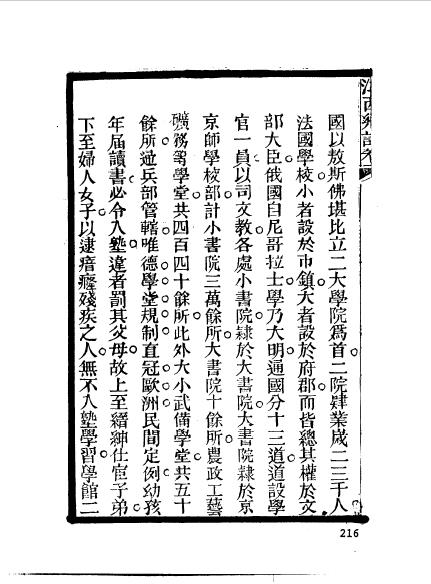 國以敖斯佛堪比立二大學院爲首二院肄業歲二三千人
法國學校小者設於市鎮大者設於府郡而皆總其權於文
部大臣俄國自尼哥拉士學乃大明通國分十三道道設學
官一員以司文教各處小書院隸於大書院大書院隸於京
京師學校部計小書院三萬餘所大書院十餘所農政工藝
礦務等學堂共四百四十餘所此外大小武備學堂共五十
餘所兵部管轄唯德學堂規制直冠歐洲民間定例幼孩
年屆讀書必令入塾違者罰其父母故上至縉紳仕宦子弟
下至婦人女子以逮瘖癃殘疾之人無不入塾學習學館二
216